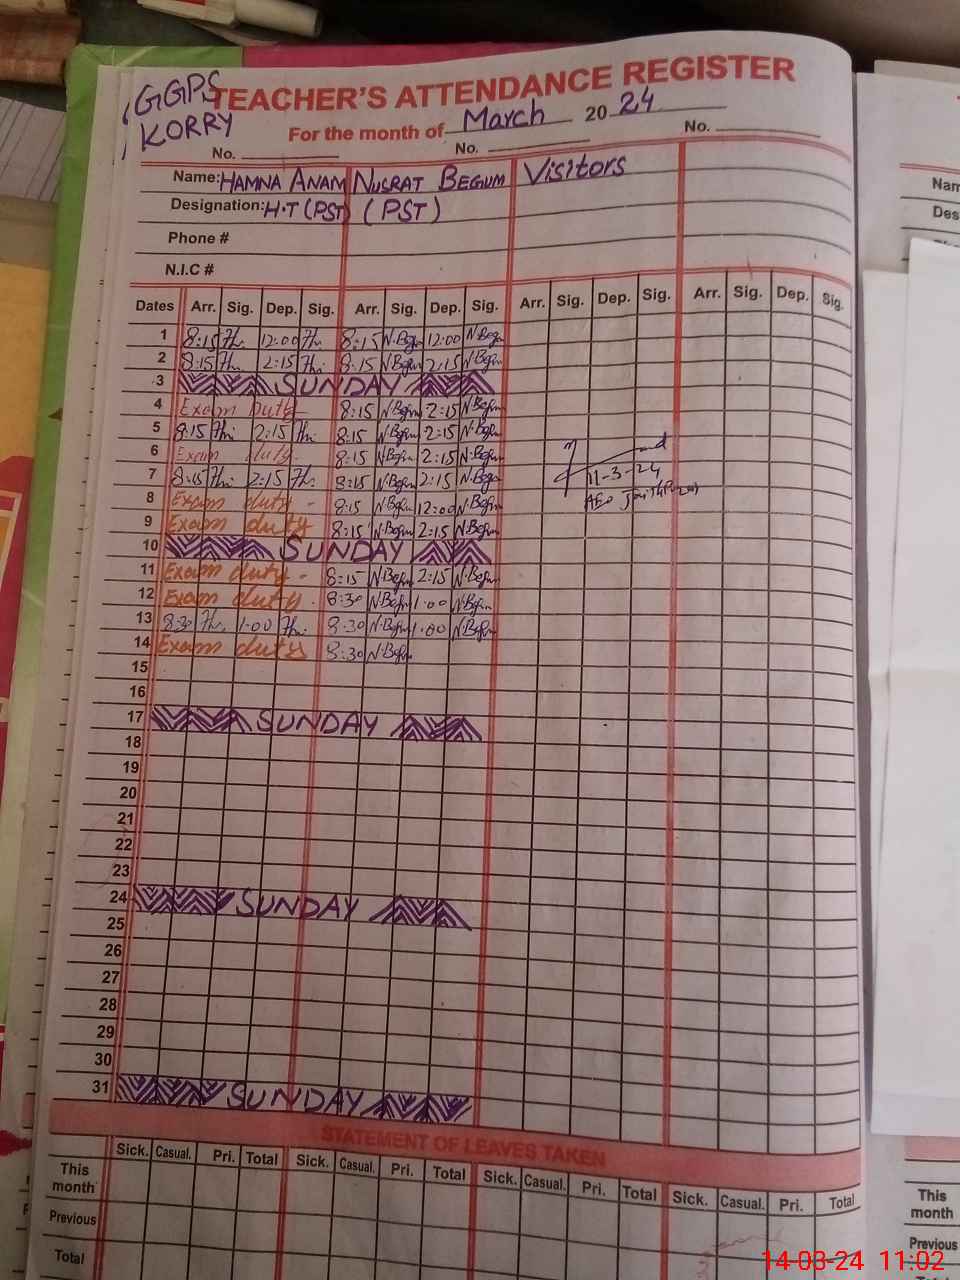 GGPS
TEACHER'S ATTENDANCE REGISTER
KORRY
For the month of March 2024
No. No. No.
Name: HAMNA ANAM NUSRAT BEGUM Visitors
Designation: H.T (PST) (PST)
Phone #
N.I.C #
Dates Arr. Sig. Dep. Sig. Arr. Sig. Dep. Sig. Arr. Sig. Dep. Sig. Arr. Sig. Dep. Sig.
1 8:15 12:00 8:15 N.Begm 12:00 N.Begm
2 8:15 2:15 8:15 N.Begm 2:15 N.Begm
3 SUNDAY
4 Exam duty- 8:15 N.Begm 2:15 N.Begm
5 8:15 2:15 8:15 N.Begm 2:15 N.Begm
6 Exam duty- 8:15 N.Begm 2:15 N.Begm
7 8:15 2:15 8:15 N.Begm 2:15 N.Begm
11-3-24
8 Exam duty - 8:15 N.Begm 12:00 N.Begm
AEO
9 Exam duty 8:15 N.Begm 2:15 N.Begm
10 SUNDAY
11 Exam duty - 8:15 N.Begm 2:15 N.Begm
12 Exam duty - 8:30 N.Begm 1:00 N.Begm
13 8:30 1:00 8:30 N.Begm 1:00 N.Begm
14 Exam duty 8:30 N.Begm
15
16
17 SUNDAY
18
19
20
21
22
23
24 SUNDAY
25
26
27
28
29
30
31 SUNDAY
STATEMENT OF LEAVES TAKEN
Sick. Casual. Pri. Total Sick. Casual. Pri. Total Sick. Casual. Pri. Total Sick. Casual. Pri. Total
This month
Previous
Total
Nam
Des
This
month
Previous
14-03-24 11:02